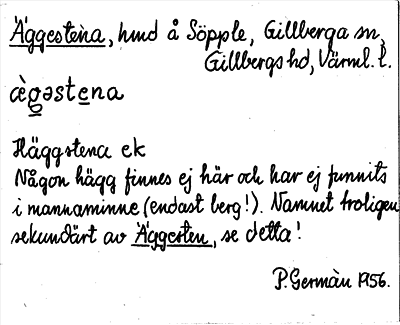 Äggestena, hmd å Söpple, Gillberga sn,
Gillbergs hd, Värml. l.
ǽgəstena
Häggstena ek
Någon hägg finnes ej här och har ej funnits
i mannaminne (endast berg!). Namnet troligen
sekundärt av Äggesten, se detta!
P. Germàn 1956.